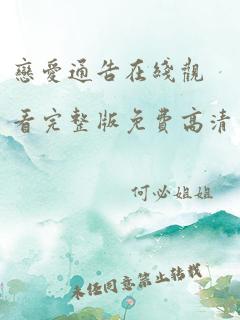 戀愛通告在綫觀
看完整版免費高清
何必姐姐
未经同意禁止转载